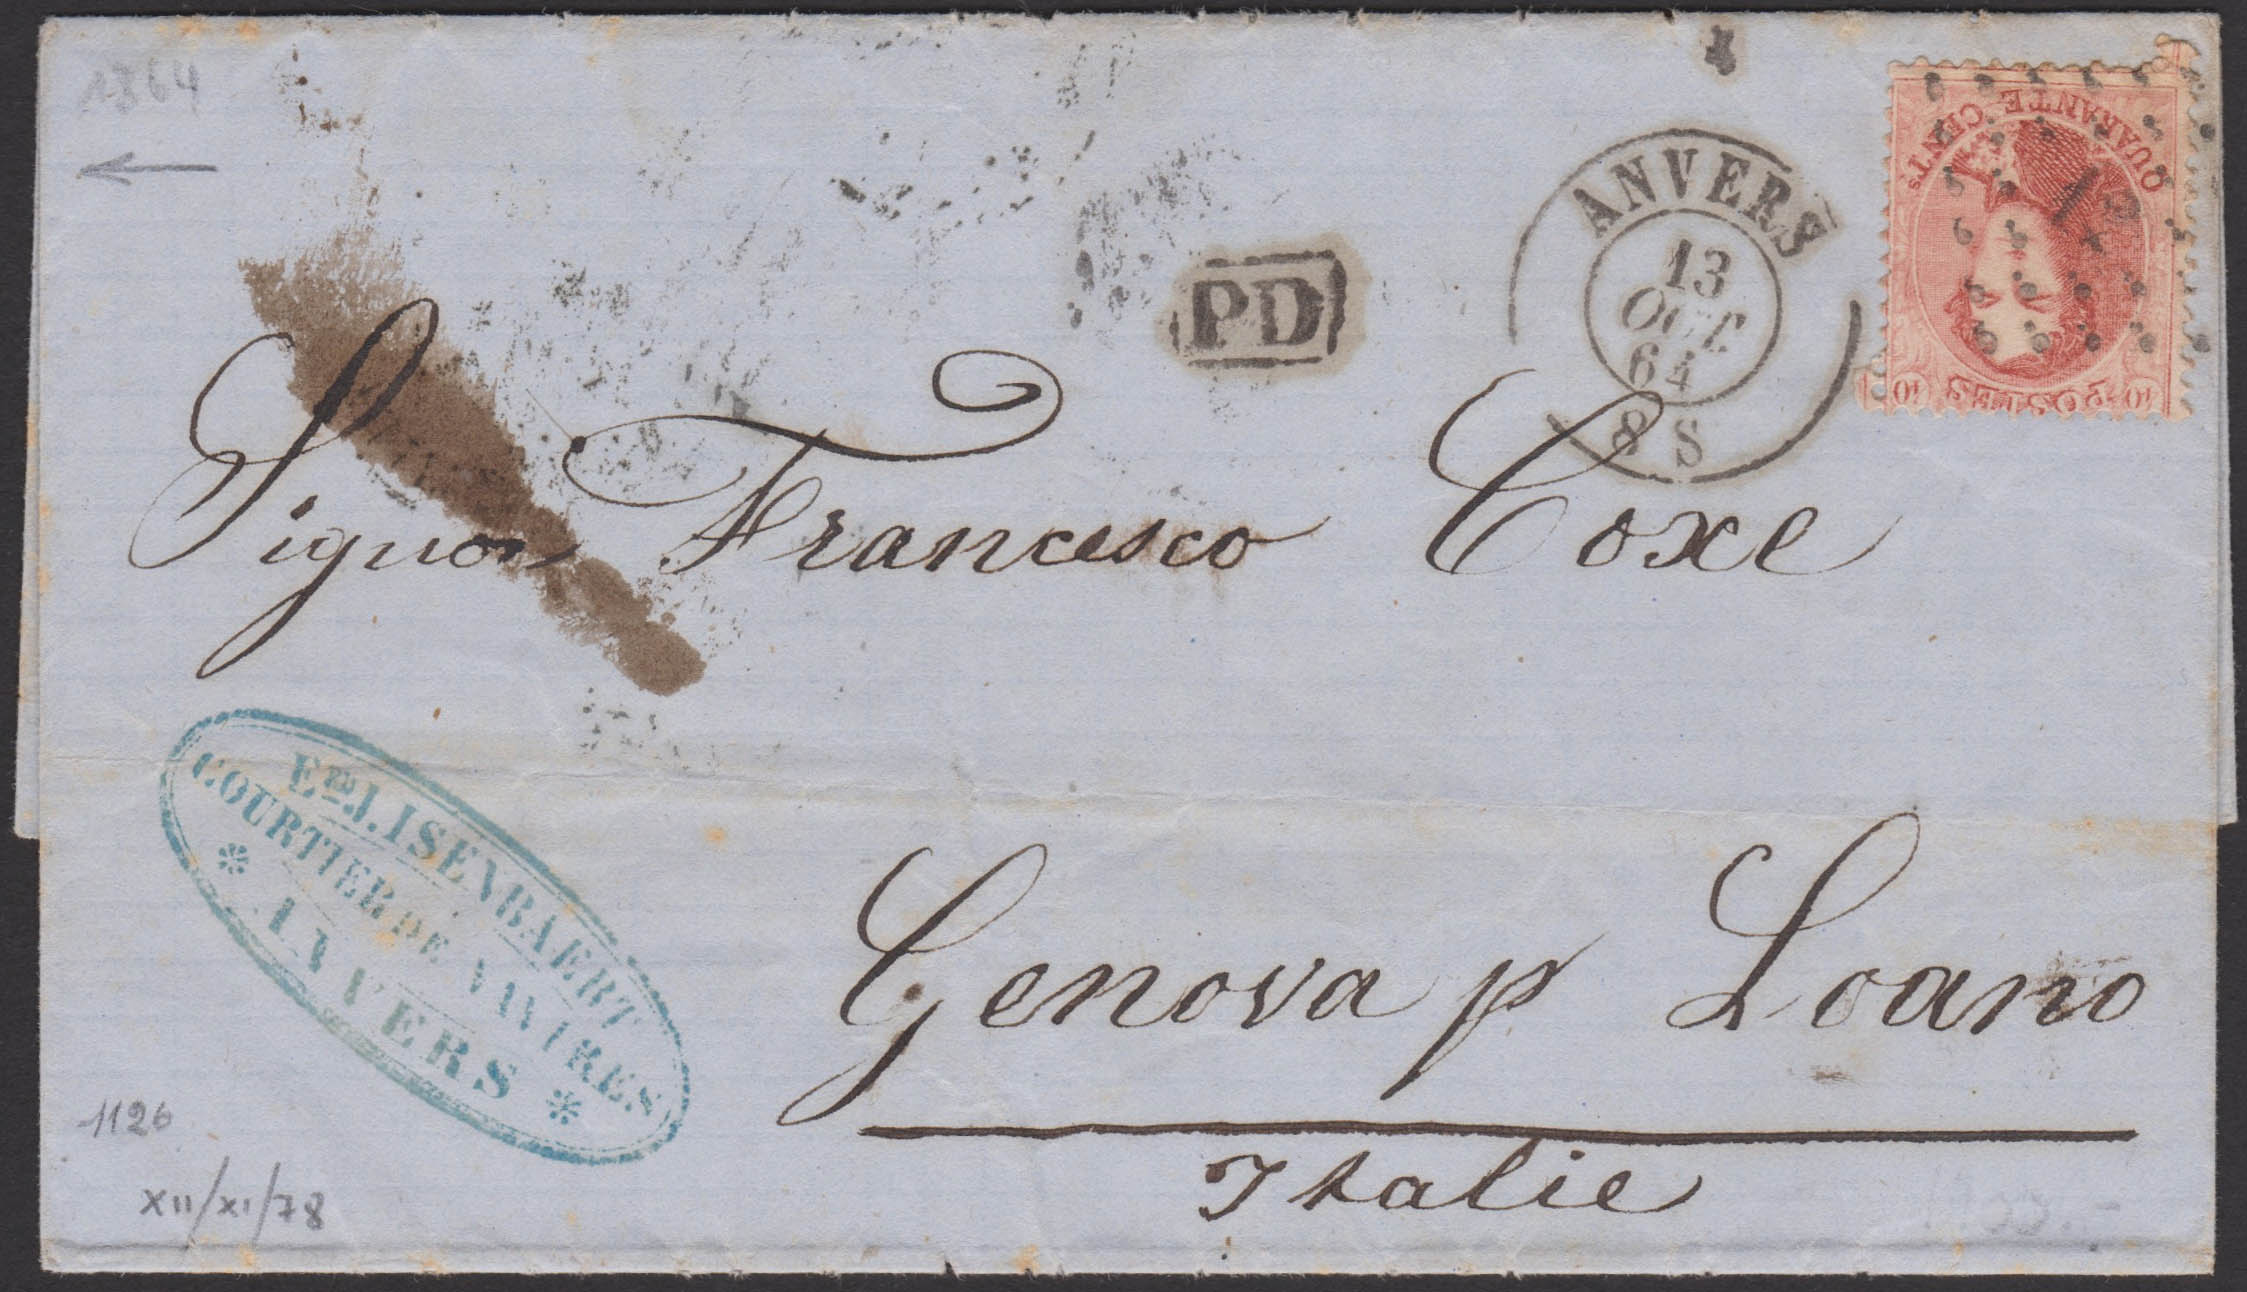 1864
QUARANTE CENTS
12
POSTES
ANVERS
13
OCT.
64
8 S
PD
Signor Francesco Coxe
Genova p Loano
Italie
Ed. J. ISENBAERT
COURTIER DE NAVIRES
* ANVERS *
1126
XII/XI/78